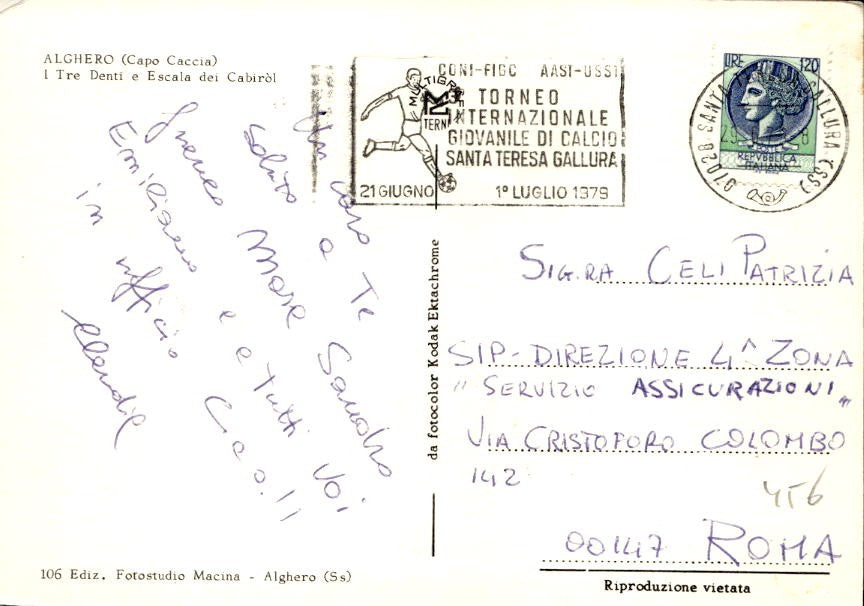 ALGHERO (Capo Caccia)
I Tre Denti e Escala dei Cabiròl
CONI-FIGC AASI-USSI
TORNEO
INTERNAZIONALE
GIOVANILE DI CALCIO
SANTA TERESA GALLURA
21 GIUGNO 1º LUGLIO 1979
LIRE 120
POSTE
REPVBBLICA
ITALIANA
07028 SANTA TERESA GALLURA (SS)
Un caro
saluto a Te
Mare Sandro
Emiliano e e tutti voi
in ufficio Ciao!!
da fotocolor Kodak Ektachrome
SIG.RA CELI PATRIZIA
SIP-DIREZIONE 4^ ZONA
"SERVIZIO ASSICURAZIONI"
VIA CRISTOFORO COLOMBO
142
456
00147 ROMA
106 Ediz. Fotostudio Macina - Alghero (Ss)
Riproduzione vietata